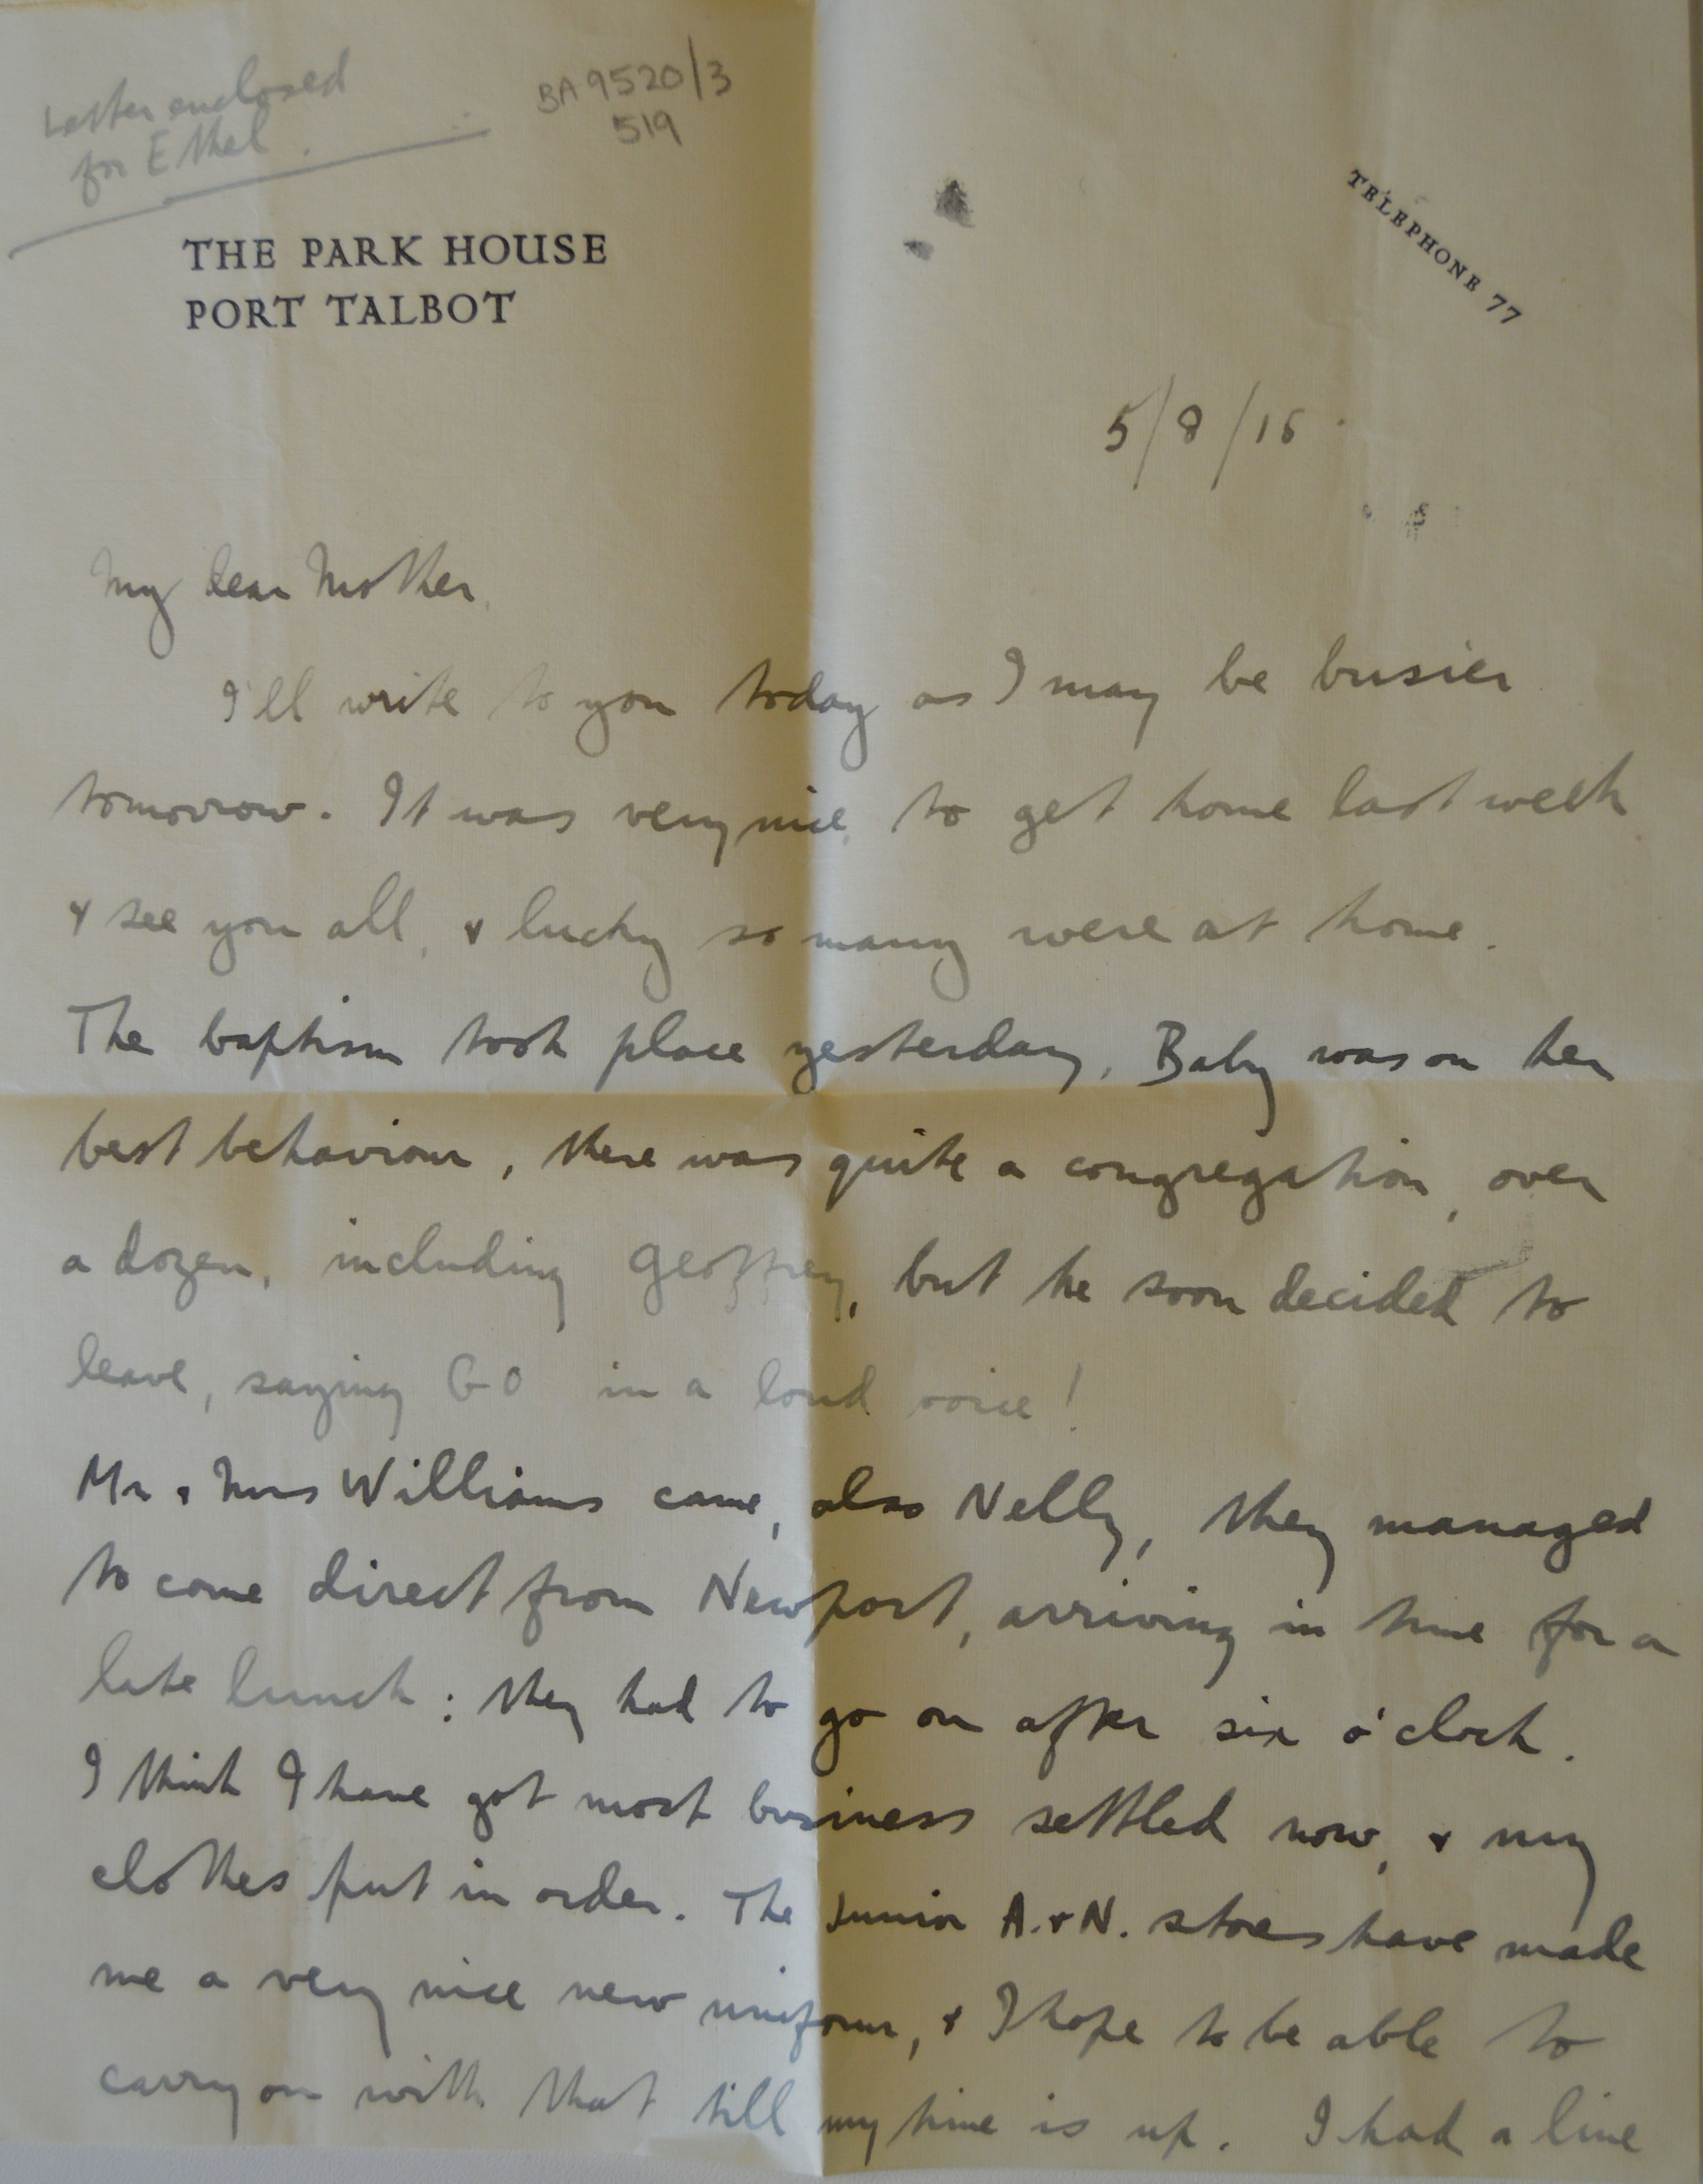 Letter enclosed
for Ethel.
BA 9520/3
519
THE PARK HOUSE
PORT TALBOT
TELEPHONE 77
5/8/16
My dear Mother,
I'll write to you today as I may be busier
tomorrow. It was very nice to get home last week
& see you all, & lucky so many were at home.
The baptism took place yesterday, Baby was on her
best behaviour, there was quite a congregation, over
a dozen, including Geoffrey, but he soon decided to
leave, saying GO in a loud voice!
Mr & Mrs Williams came, also Nelly, they managed
to come direct from Newport, arriving in time for a
late lunch: they had to go on after six o'clock.
I think I have got most business settled now, & my
clothes put in order. The Junior A. & N. stores have made
me a very nice new uniform, & I hope to be able to
carry on with that till my time is up. I had a line